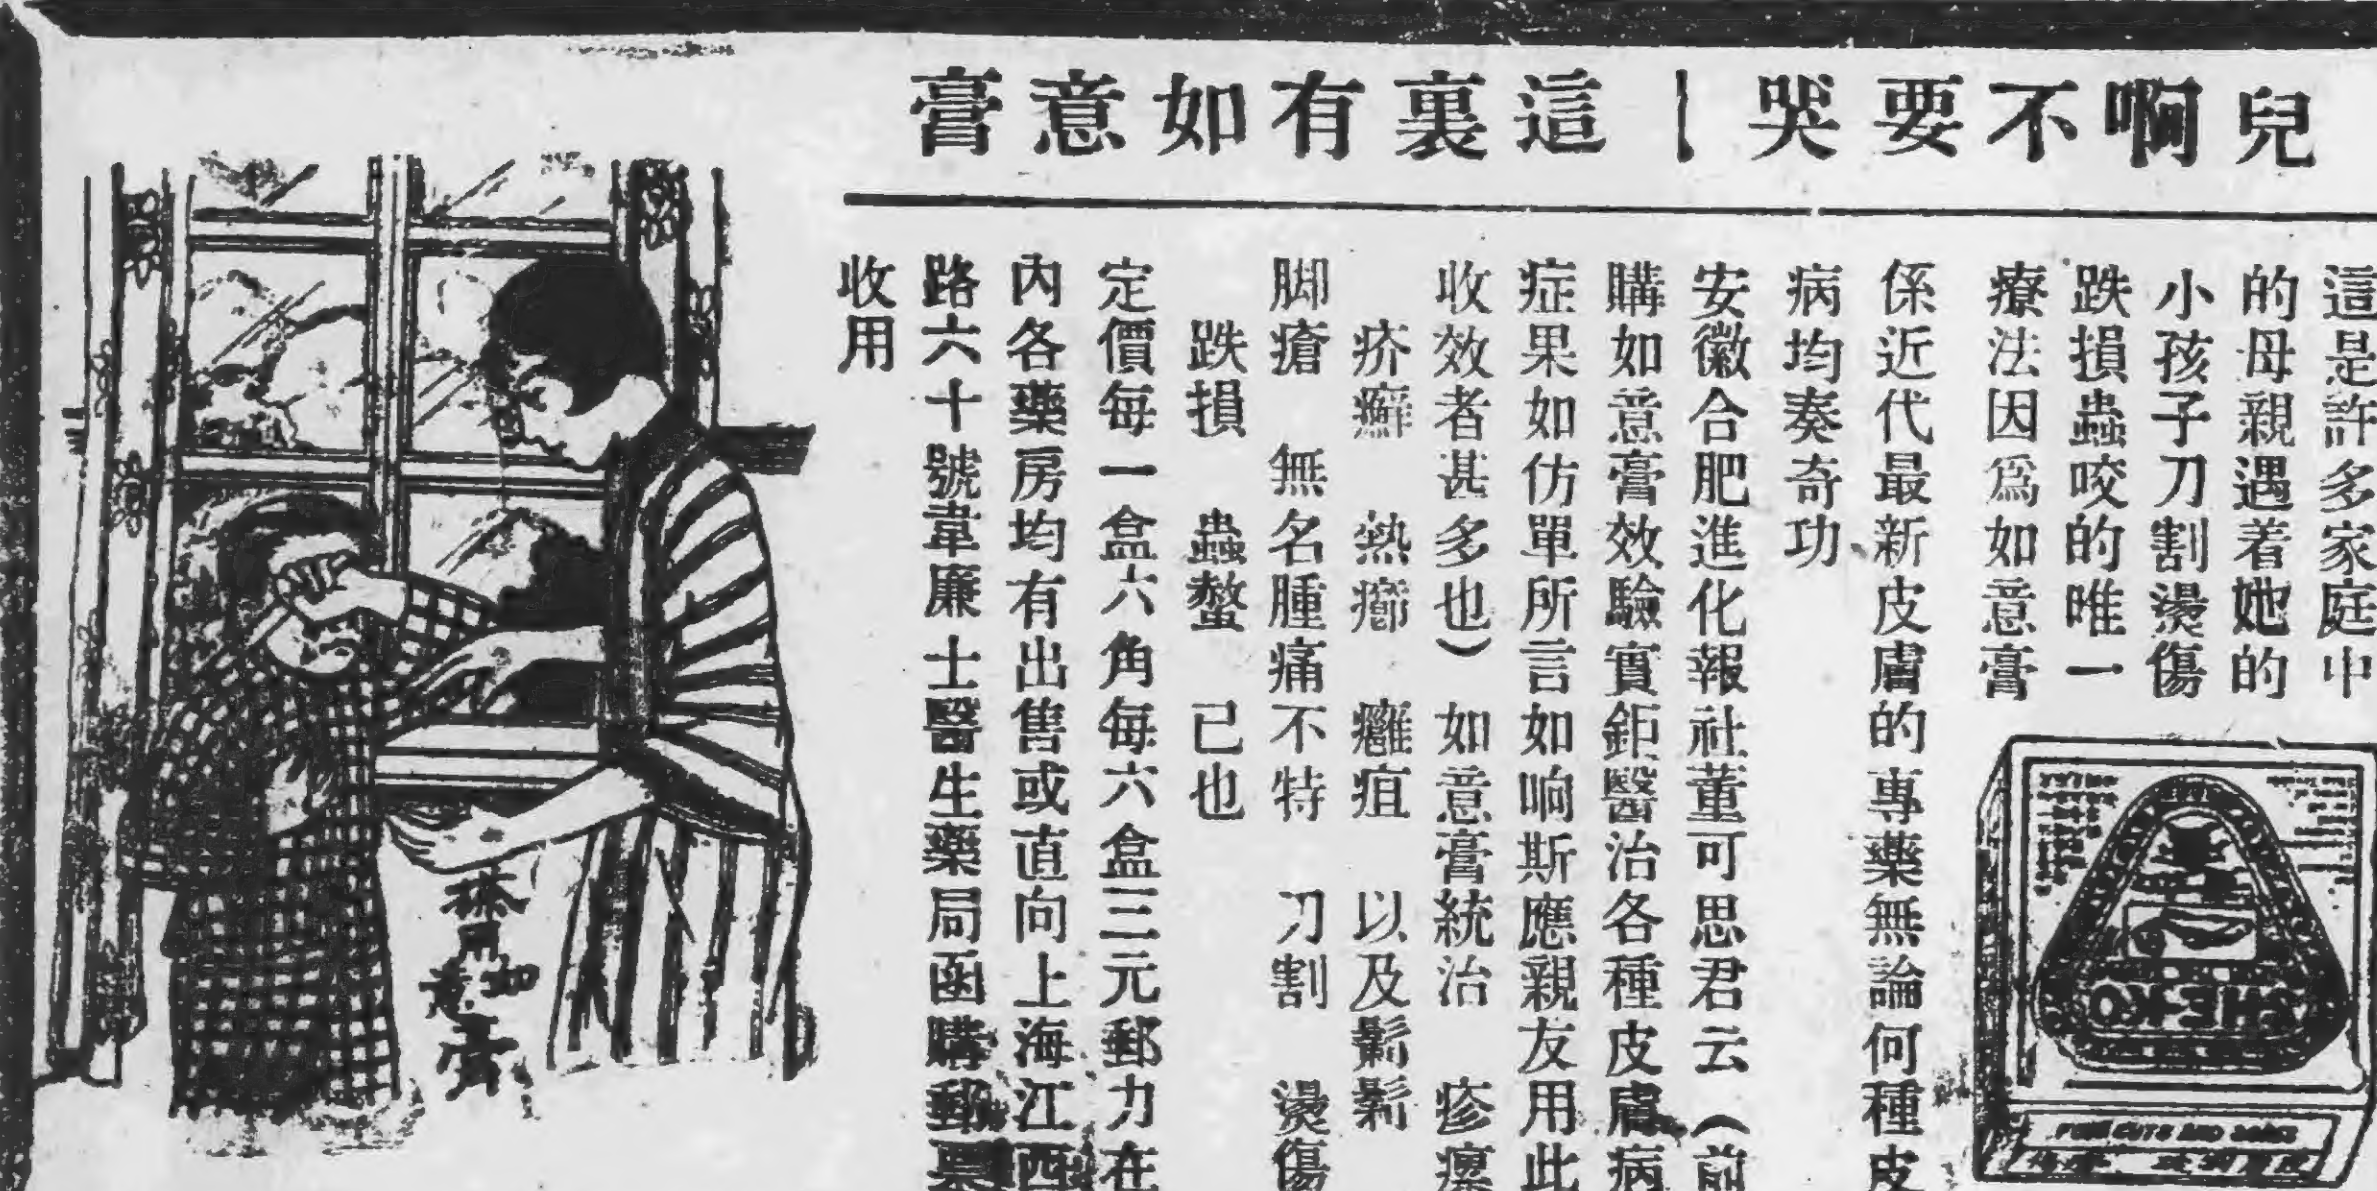 兒啊不要哭｜這裏有如意膏
這是許多家庭中
的母親遇着她的
小孩子刀割燙傷
跌損蟲咬的唯一
療法因爲如意膏
係近代最新皮膚的專藥無論何種皮
病均奏奇功
安徽合肥進化報社董可思君云（前
購如意膏效驗實鉅醫治各種皮膚病
症果如仿單所言如响斯應親友用此
收效者甚多也）如意膏統治 疹瘰
疥癬 熱癤 癰疽 以及鬍鬎
脚瘡 無名腫痛不特 刀割 燙傷
跌損 蟲螫 已也
定價每一盒六角每六盒三元郵力在
內各藥房均有出售或直向上海江西
路六十號韋廉士醫生藥局函購郵票
收用
搽用如意膏
SHE-KO
FOR CUTS AND